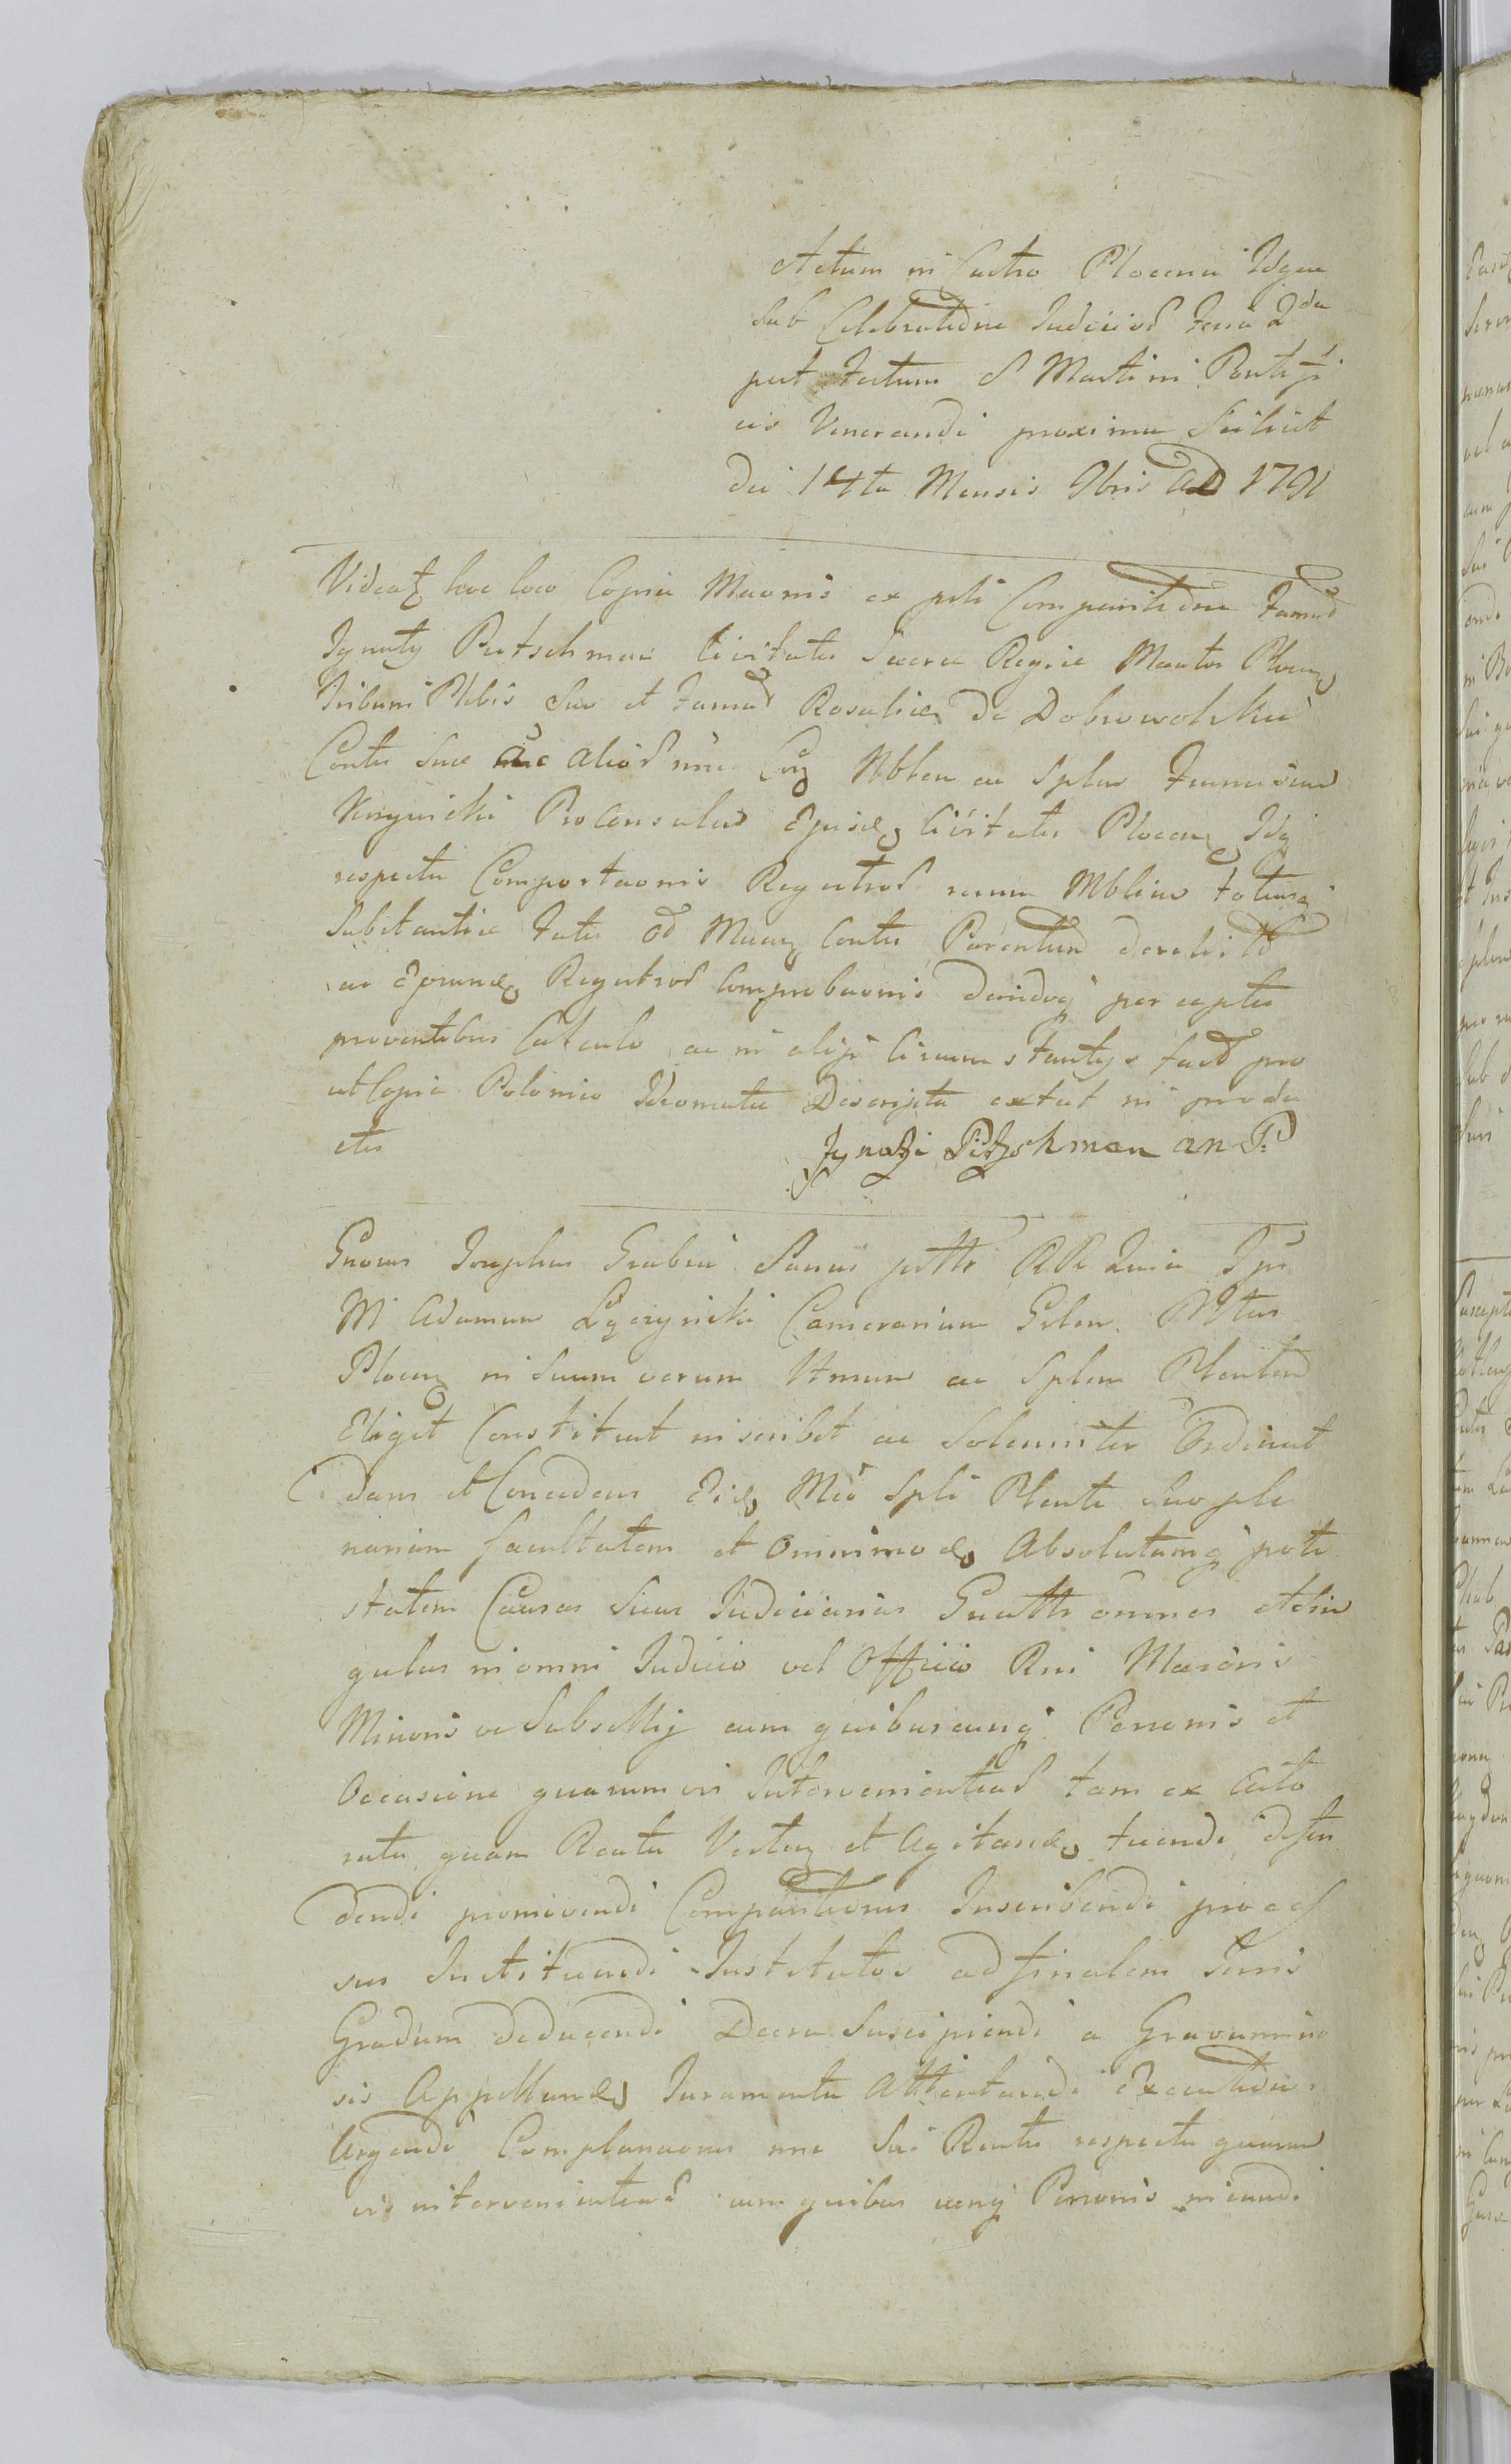 Actum in Castro Plocensi Idque
Sub Celebratione Judicior Feria 2da
post Festum S Martini Pontifi
cis Venerandi proxima Scilicet
die 14ta Mensis 9bris AD 1791
Videatz hoc loco Copia ex Comparitione Famti
Ignaty Petschman Civitatis Sacrae Regiae Mawtis Plocen
Tribuni Plebis Suo et Famae Rosaliae de Dobrowolskie
Contis Suae ac alior nne Coq Nblem ac Splem Franciscum
Proconsulem Ejusd Civitatis Plocen Idq
respectu Comportaonis Registror rerum Mblium totiusq
Substantiae Fatis Parentum derelict
ac Eorund Registror Comprobaonis deindeq perceptis
proventibus Calculo ac in aliji Circumstantys fact pro
ut Copia Polonico Idiomate Descripta extat in produ
ctis
Ignatzi Pitzschman an P:
Gnosus Josephus Grabia Sanus
M Adamum Łączynski Camerarium Grlem Pttus
Plocen in Suum verum Ntmum ac Splem Plentem
Eligit Constituit inscribit ac Solemniter Ordinat
dans et Concedens Eid Mco Spli Plenti Suo ple
nariam facultatem et omnimod Absolutamq pote
statem Causas Suas Judiciarias Gnattr omnes et sin
gulas in omni Judicio vel Officio Rni Maioris
Minoris ve Subsellij cum quibuscunq Personis et
Occasione quarumvis Intervenientiar tam ex Acto
ratu quam Reatu Verten et Agitand tuendi defen
dendi promovendi Comparitiones Inscribendi process
sus Instituendi Institutos ad finalem Juris
Gradum deducendi Decreta Suscipiendi a Gravamino
sis Appelland Juramenta Attentandi Executiones
Urgendi Complanaones nne Sui Reatus respectu quarum
vis intervenientiar cum quibus cunq Personis ineundi